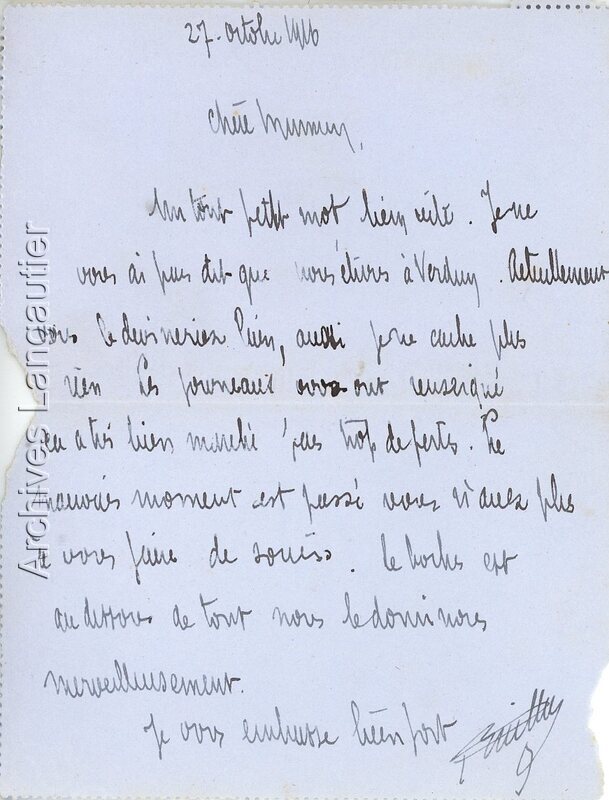 27. octobre 1916
Chère
Un tout petit mot bien vite. Je ne
vous ai pas dit que nous étions à Verdun. Actuellement
vous le devineriez bien, aussi je ne cache plus
rien Les journeaux vous ont renseigné
ça a très bien marché pas trop de pertes. Le
mauvais moment est passé vous n'avez plus
à vous faire de soucis. Le boches est
au dessous de tout nous le dominons
merveilleusement.
Je vous embrasse bien fort
Archives Langautier